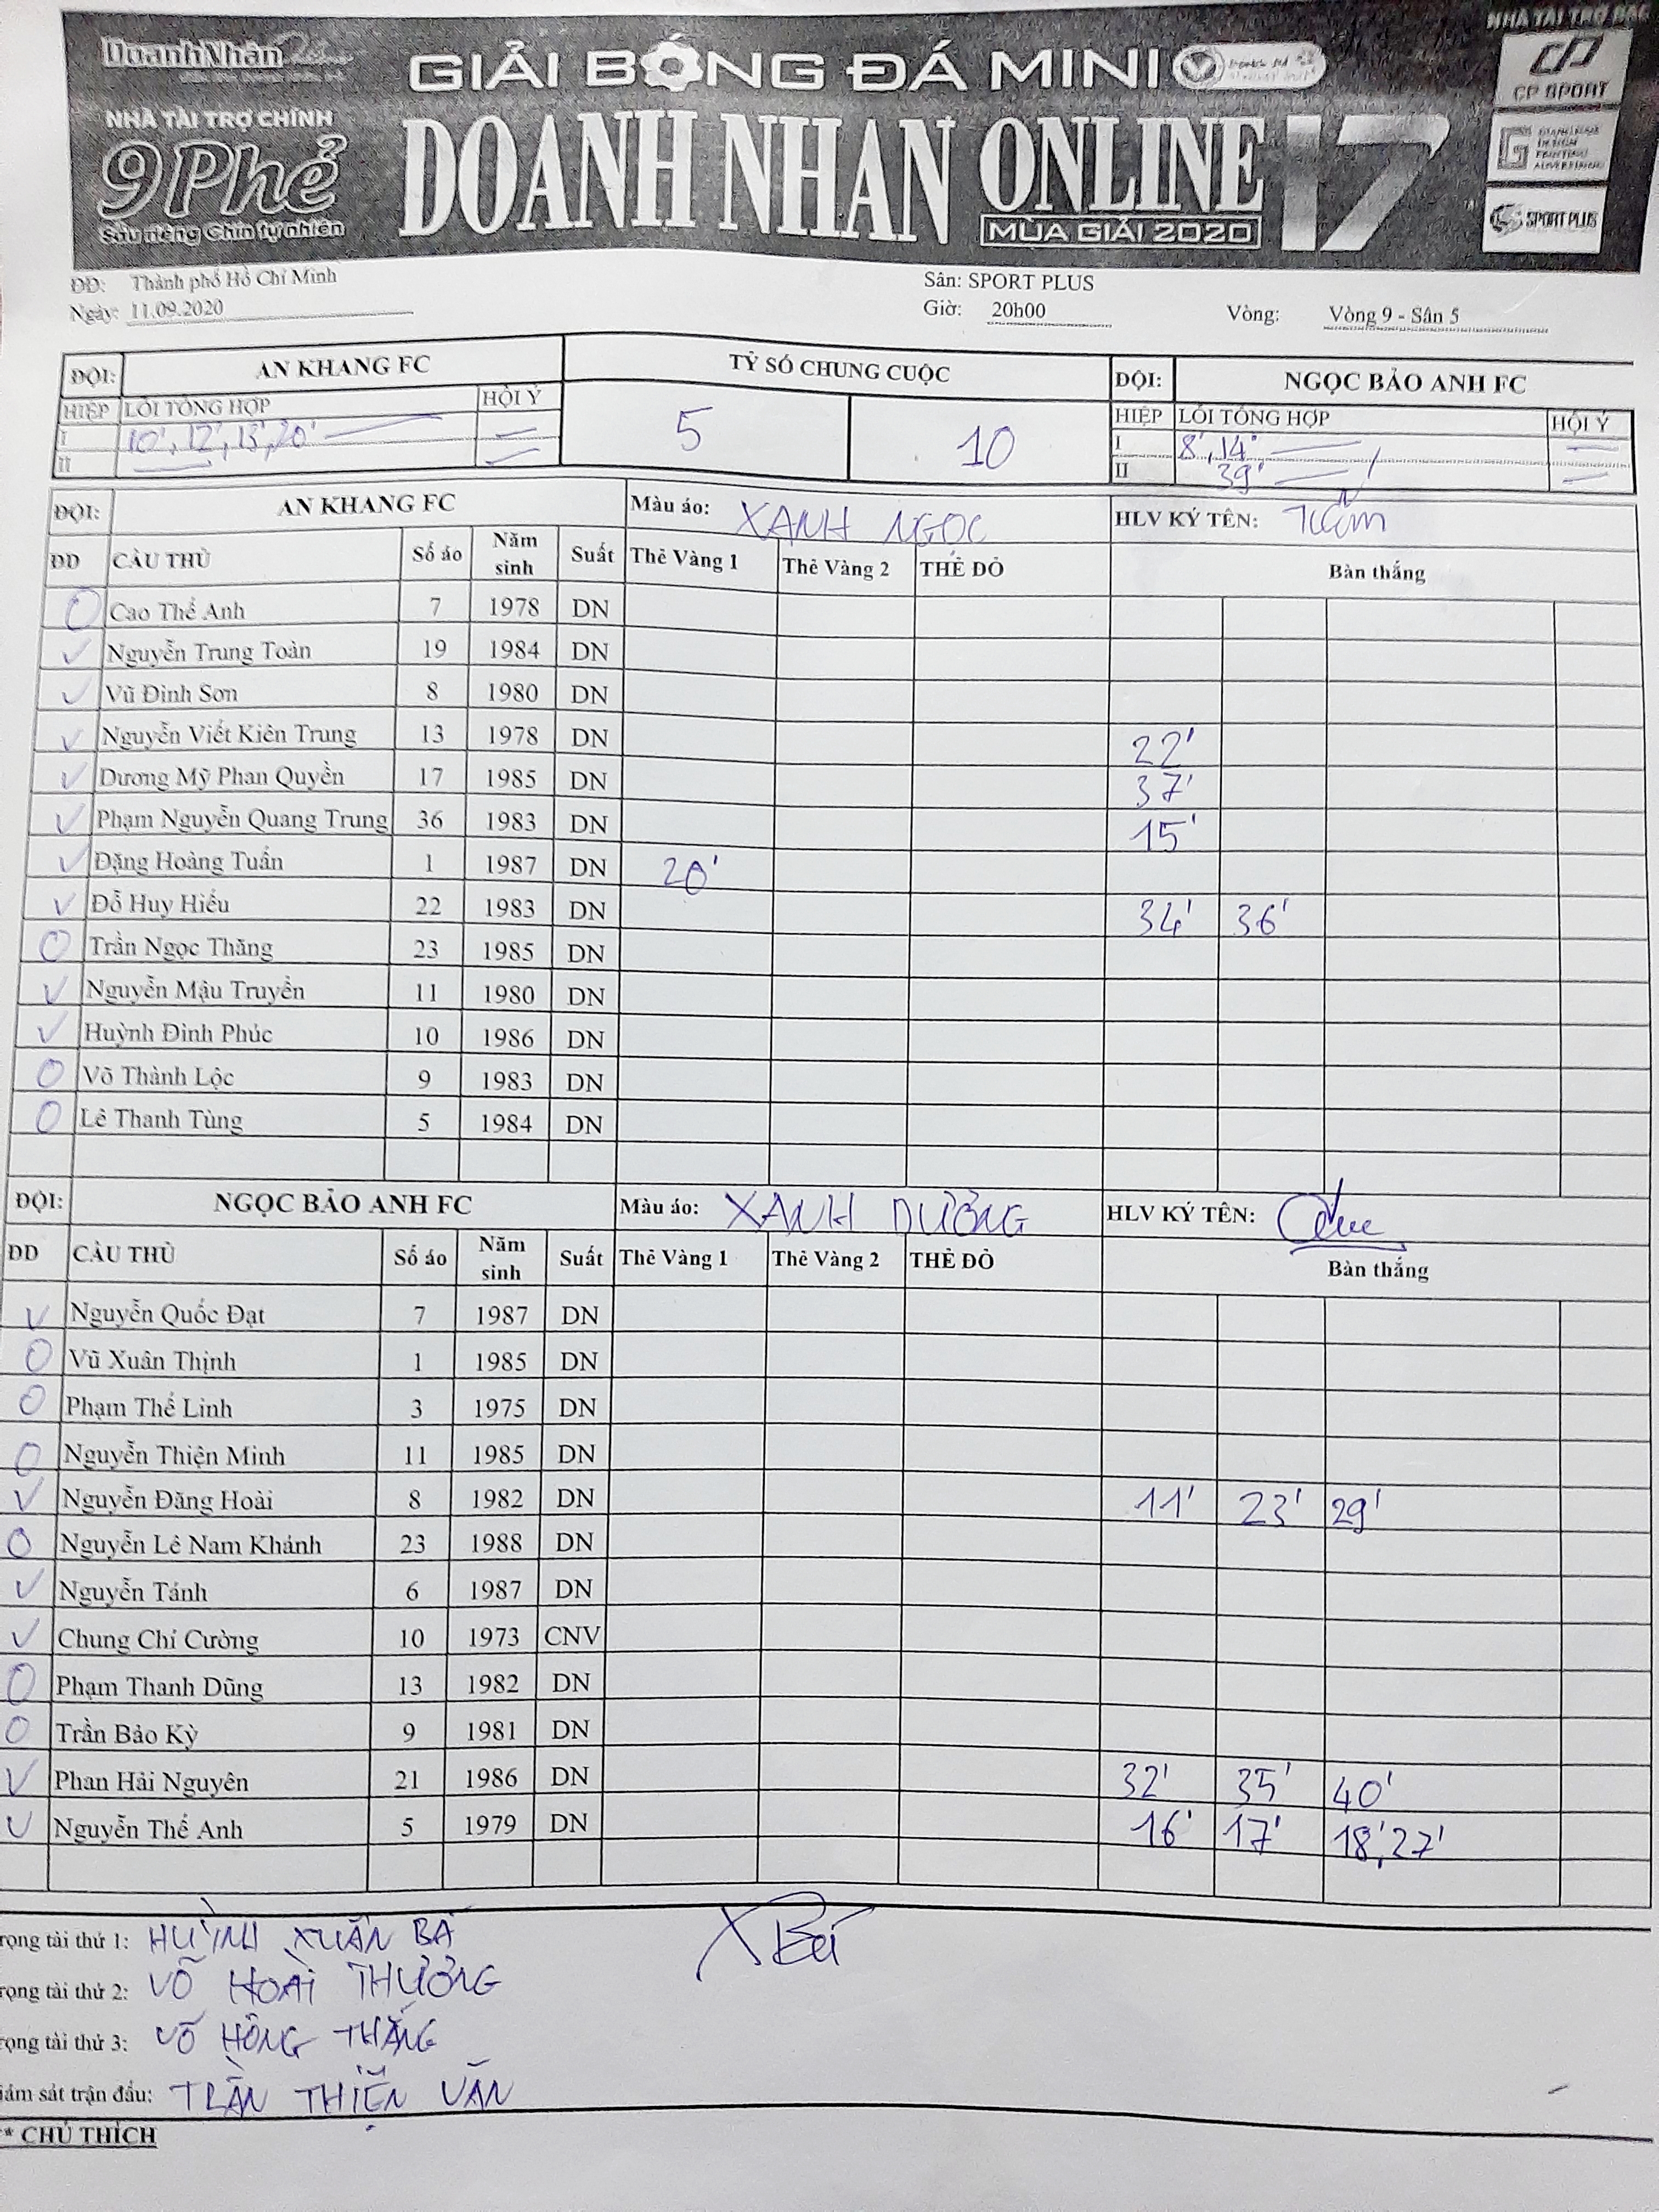 DoanhNhân
NHÀ TÀI TRỢ BẠC
GIẢI BÓNG ĐÁ MINI
CP SPORT
NHÀ TÀI TRỢ CHÍNH
9 Phẻ
Sầu riêng Chín tự nhiên
DOANH NHAN ONLINE 17
MÙA GIẢI 2020
SPORT PLUS
ĐĐ: Thành phố Hồ Chí Minh Sân: SPORT PLUS
Ngày: 11.09.2020 Giờ: 20h00 Vòng: Vòng 9 - Sân 5
ĐỘI: AN KHANG FC TỶ SỐ CHUNG CUỘC ĐỘI: NGỌC BẢO ANH FC
HIỆP LỖI TỔNG HỢP HỘI Ý 5 10 HIỆP LỖI TỔNG HỢP HỘI Ý
I 10', 12', 13', 20' I 8', 14'
II II 39'
ĐỘI: AN KHANG FC Màu áo: XANH NGỌC HLV KÝ TÊN:
ĐD CẦU THỦ Số áo Năm sinh Suất Thẻ Vàng 1 Thẻ Vàng 2 THẺ ĐỎ Bàn thắng
Cao Thế Anh 7 1978 DN
Nguyễn Trung Toàn 19 1984 DN
Vũ Đình Sơn 8 1980 DN
Nguyễn Viết Kiên Trung 13 1978 DN 22'
Dương Mỹ Phan Quyền 17 1985 DN 37'
Phạm Nguyễn Quang Trung 36 1983 DN 15'
Đặng Hoàng Tuấn 1 1987 DN 20'
Đỗ Huy Hiếu 22 1983 DN 34' 36'
Trần Ngọc Thăng 23 1985 DN
Nguyễn Mậu Truyền 11 1980 DN
Huỳnh Đình Phúc 10 1986 DN
Võ Thành Lộc 9 1983 DN
Lê Thanh Tùng 5 1984 DN
ĐỘI: NGỌC BẢO ANH FC Màu áo: XANH DƯƠNG HLV KÝ TÊN:
ĐD CẦU THỦ Số áo Năm sinh Suất Thẻ Vàng 1 Thẻ Vàng 2 THẺ ĐỎ Bàn thắng
Nguyễn Quốc Đạt 7 1987 DN
Vũ Xuân Thịnh 1 1985 DN
Phạm Thế Linh 3 1975 DN
Nguyễn Thiện Minh 11 1985 DN
Nguyễn Đăng Hoài 8 1982 DN 11' 23' 29'
Nguyễn Lê Nam Khánh 23 1988 DN
Nguyễn Tánh 6 1987 DN
Chung Chí Cường 10 1973 CNV
Phạm Thanh Dũng 13 1982 DN
Trần Bảo Kỳ 9 1981 DN
Phan Hải Nguyên 21 1986 DN 32' 35' 40'
Nguyễn Thế Anh 5 1979 DN 16' 17' 18', 27'
rọng tài thứ 1: HUỲNH XUÂN BÁ XBá
rọng tài thứ 2: VÕ HOÀI THƯƠNG
rọng tài thứ 3: VÕ HỒNG THẮNG
iám sát trận đấu: TRẦN THIỆN VĂN
* CHÚ THÍCH